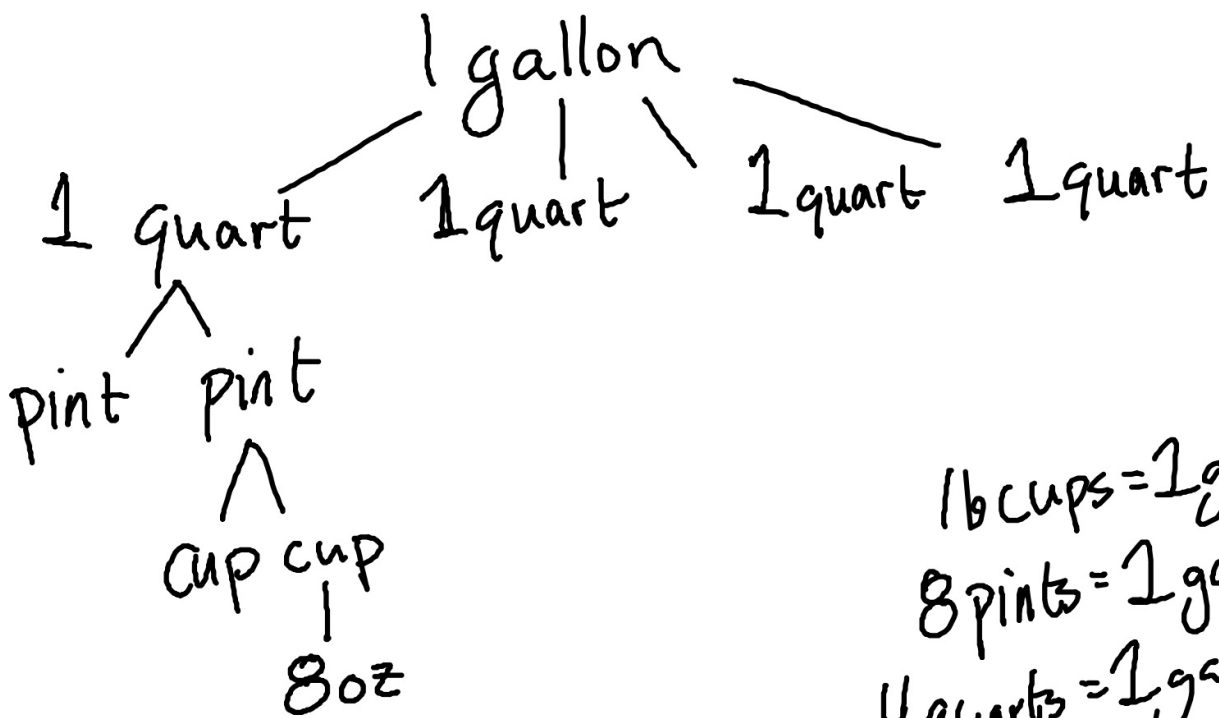 1 gallon
1 quart 1 quart 1 quart 1 quart
pint pint
cup cup
8 oz
16 cups = 1
8 pints = 1 ga
4 quarts = 1 ga